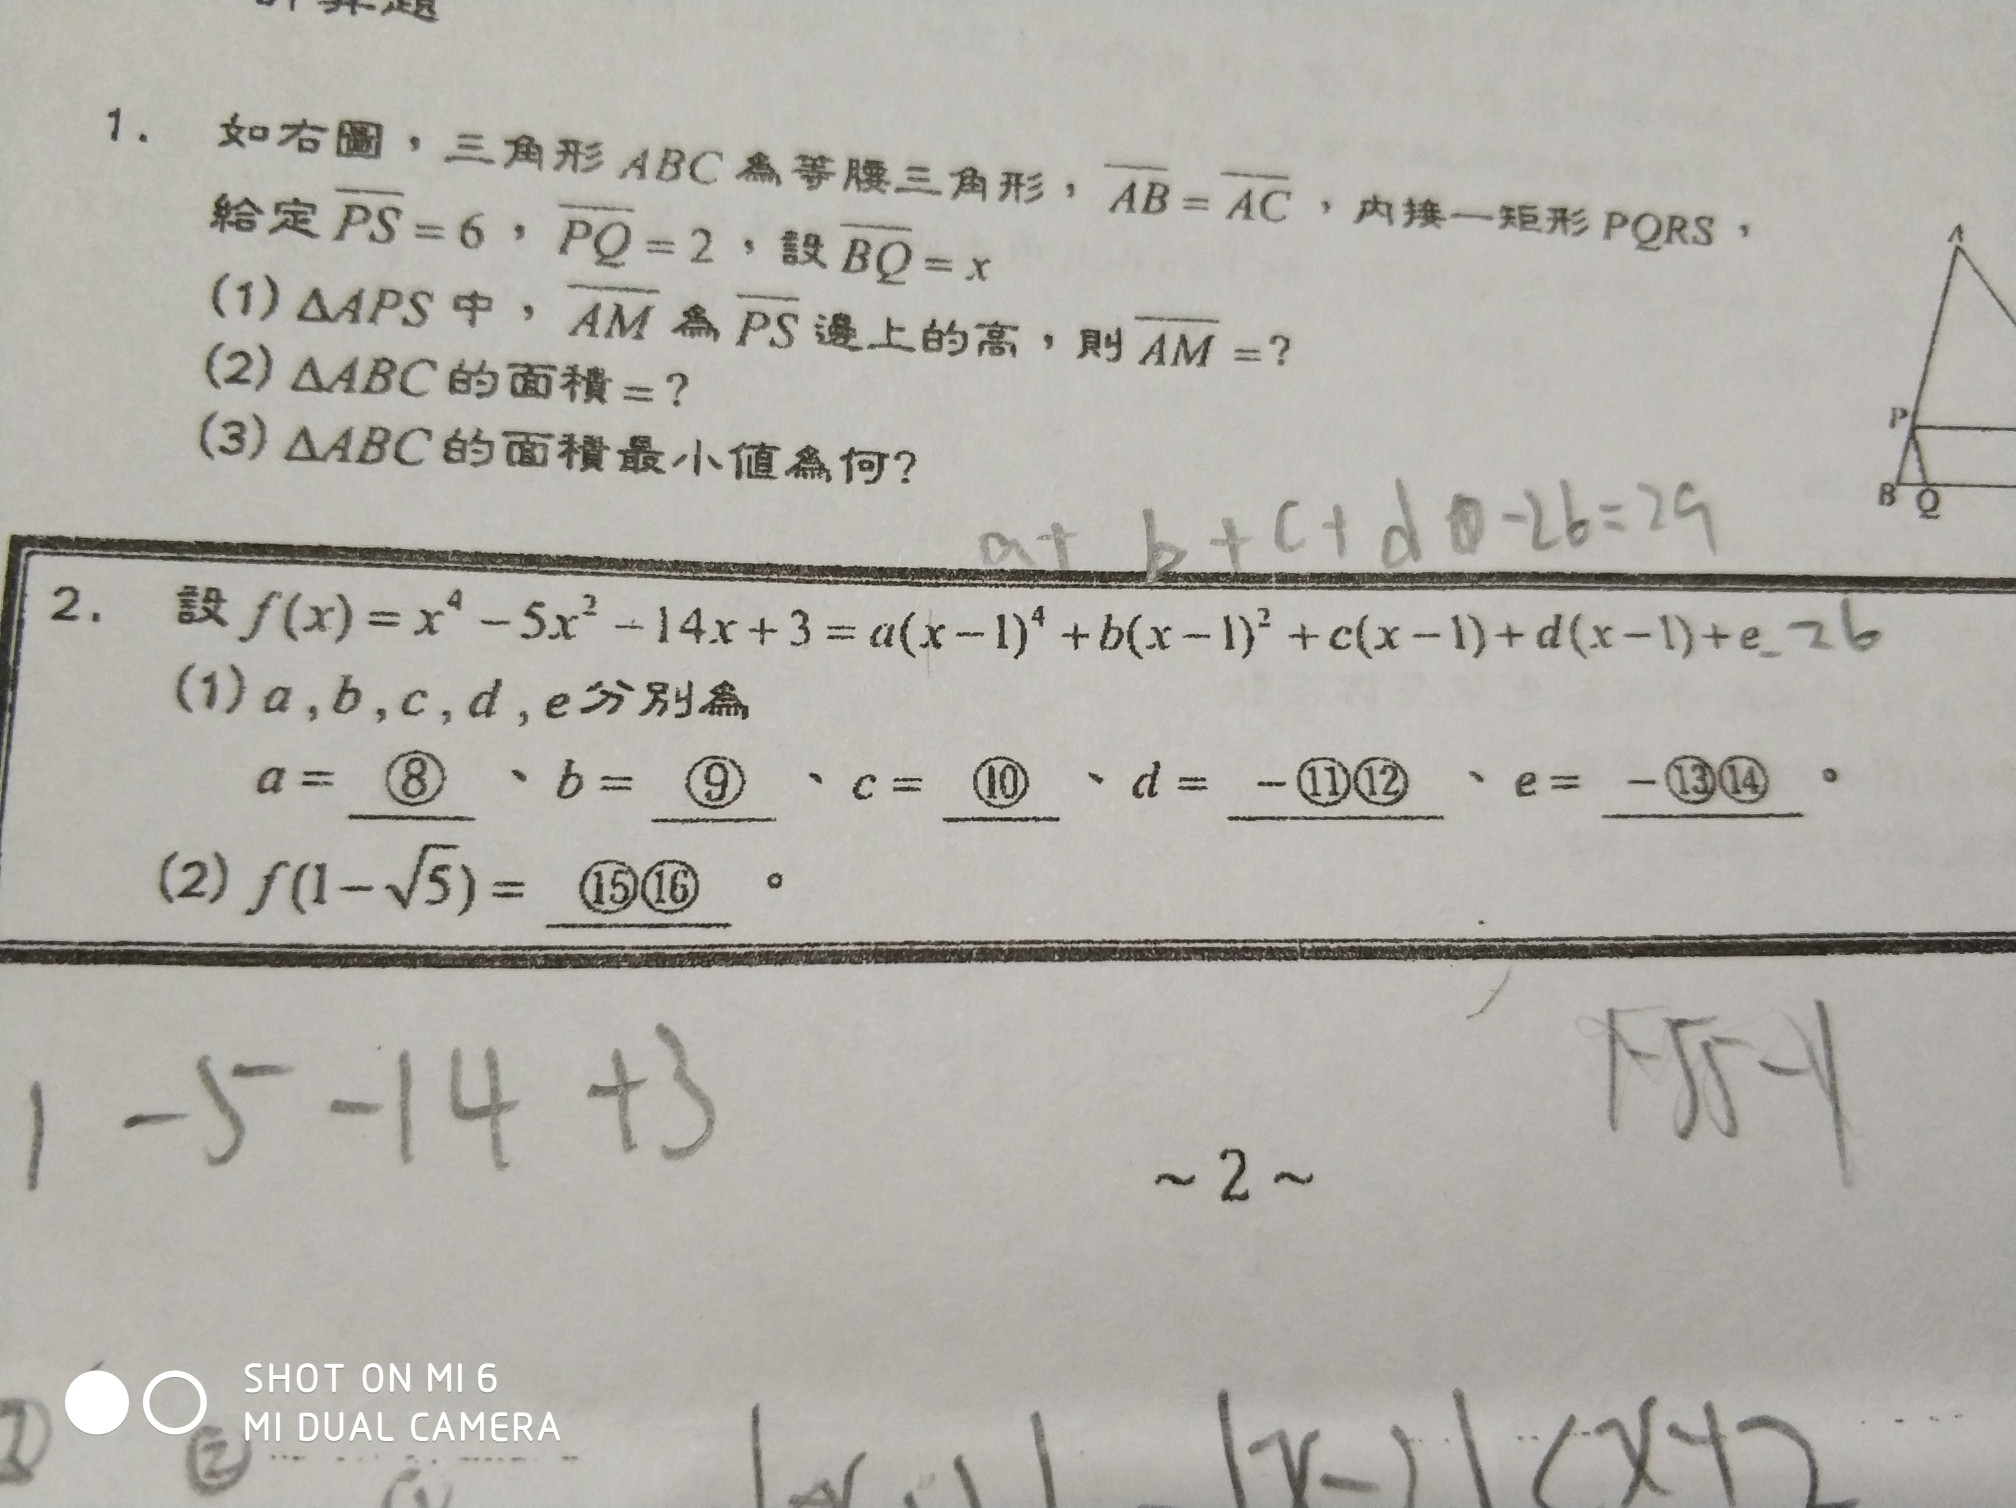 計算題
1. 如右圖，三角形 ABC 為等腰三角形，AB = AC，內接一矩形 PQRS，
給定 PS = 6，PQ = 2，設 BQ = x
(1) ΔAPS 中，AM 為 PS 邊上的高，則 AM = ?
(2) ΔABC 的面積 = ?
(3) ΔABC 的面積最小值為何?
A
P
B Q
a + b + c + d
-26 = 29
2. 設 f(x) = x⁴ - 5x² - 14x + 3 = a(x-1)⁴ + b(x-1)² + c(x-1) + d(x-1) + e - 26
(1) a , b , c , d , e 分別為
a = ⑧ 、b = ⑨ 、c = ⑩ 、d = -⑪⑫ 、e = -⑬⑭ 。
(2) f(1-√5) = ⑮⑯ 。
1 -5 -14 +3
~ 2 ~
SHOT ON MI 6
MI DUAL CAMERA
②